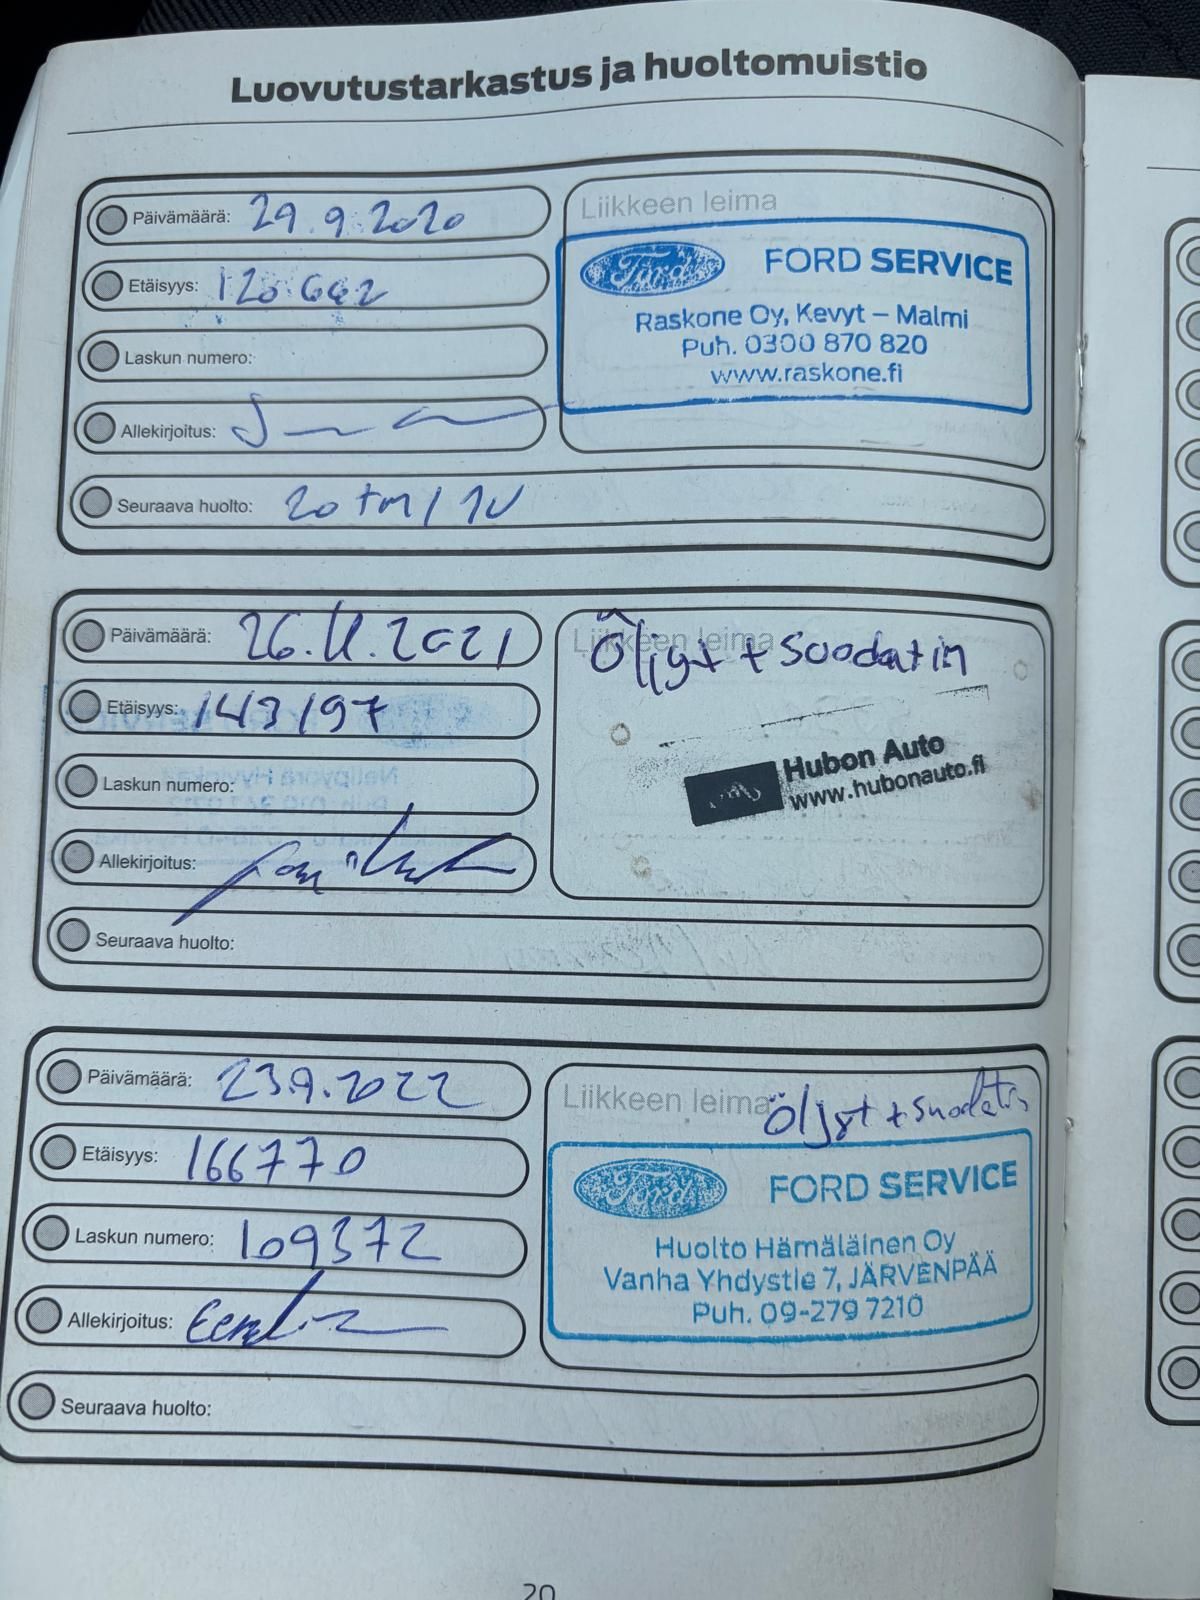 Luovutustarkastus ja huoltomuistio
Päivämäärä: 29.9.2020
Etäisyys:
Laskun numero:
Allekirjoitus:
Seuraava huolto: 20 tm / 1V
Liikkeen leima
Ford
FORD SERVICE
Raskone Oy, Kevyt – Malmi
Puh. 0300 870 820
www.raskone.fi
Päivämäärä: 26.11.2021
Etäisyys: 143197
Laskun numero:
Allekirjoitus:
Seuraava huolto:
Liikkeen leima
Öljyt + suodatin
Hubon Auto
www.hubonauto.fi
Päivämäärä: 23.9.2022
Etäisyys: 166770
Laskun numero: 109372
Allekirjoitus:
Seuraava huolto:
Liikkeen leima
Öljyt + suodatin
Ford
FORD SERVICE
Huolto Hämäläinen Oy
Vanha Yhdystie 7, JÄRVENPÄÄ
Puh. 09-279 7210
20